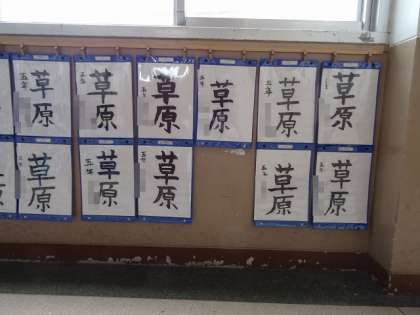 草原
五年
草原
五年
草原
草原
草原
五年
草原
草原
草原
五年
草原
草原
草原